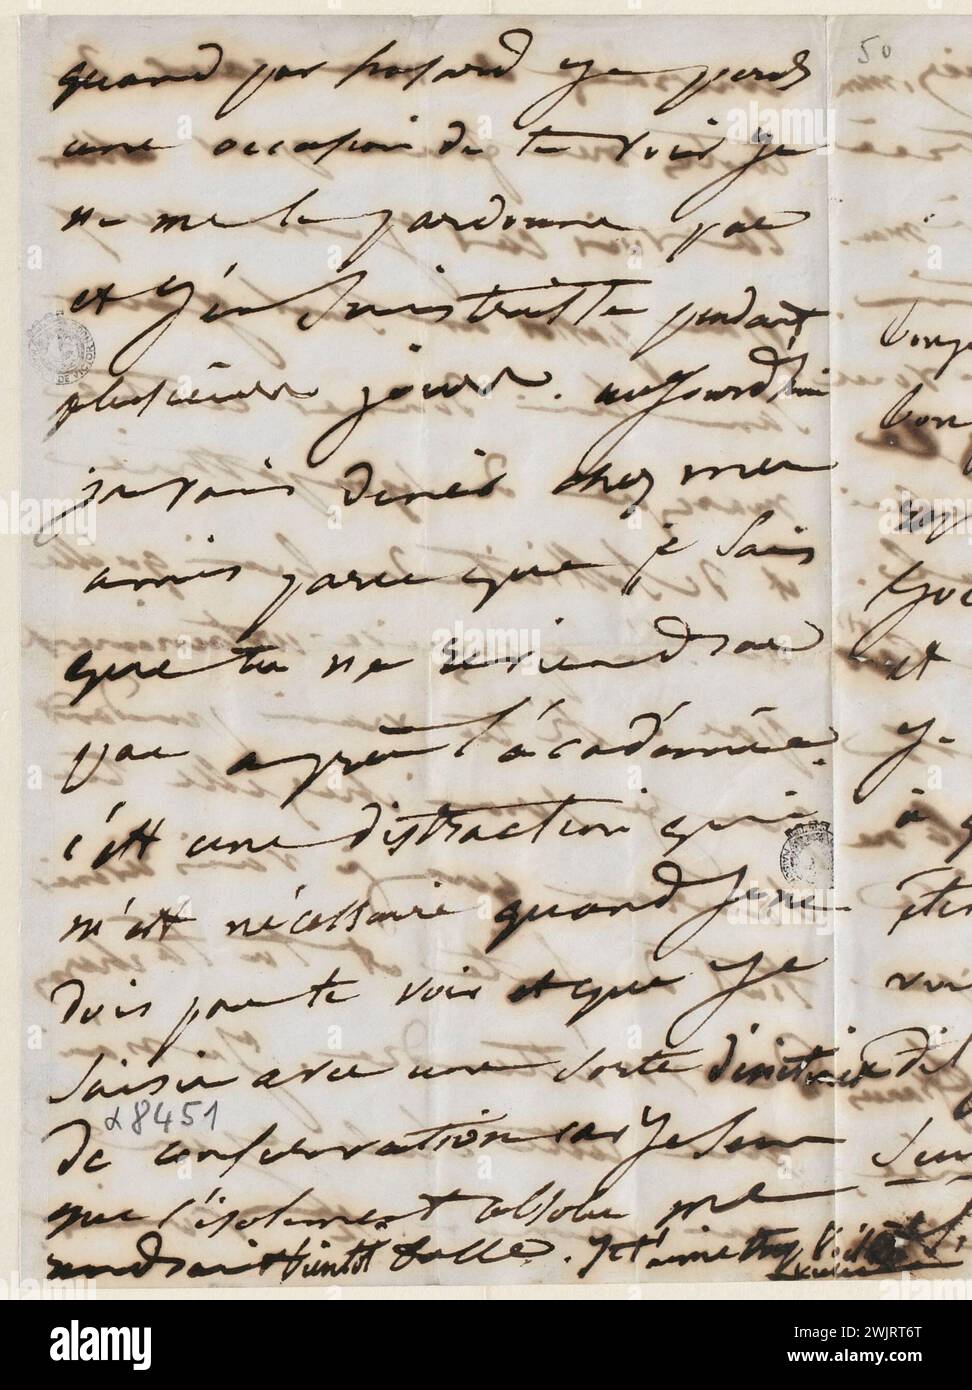 50
quand par hasard je perds
une occasion de te voir je
ne me le pardonne pas
et j'en suis triste pendant
plusieurs jours. aujourd'hui
je vais diner chez mes
amis parce que je sais
que tu ne reviendras
pas après l'académie.
c'est une distraction qui
m'est nécessaire quand je ne
dois pas te voir et que je
saisis avec une sorte d'instinct
α8451
de conservation car je sens
que l'isolement absolu me
rendrait bientôt folle. Je t'aime trop
bon
et
à
alamy
Image ID: 2WJRT6T
www.alamy.com